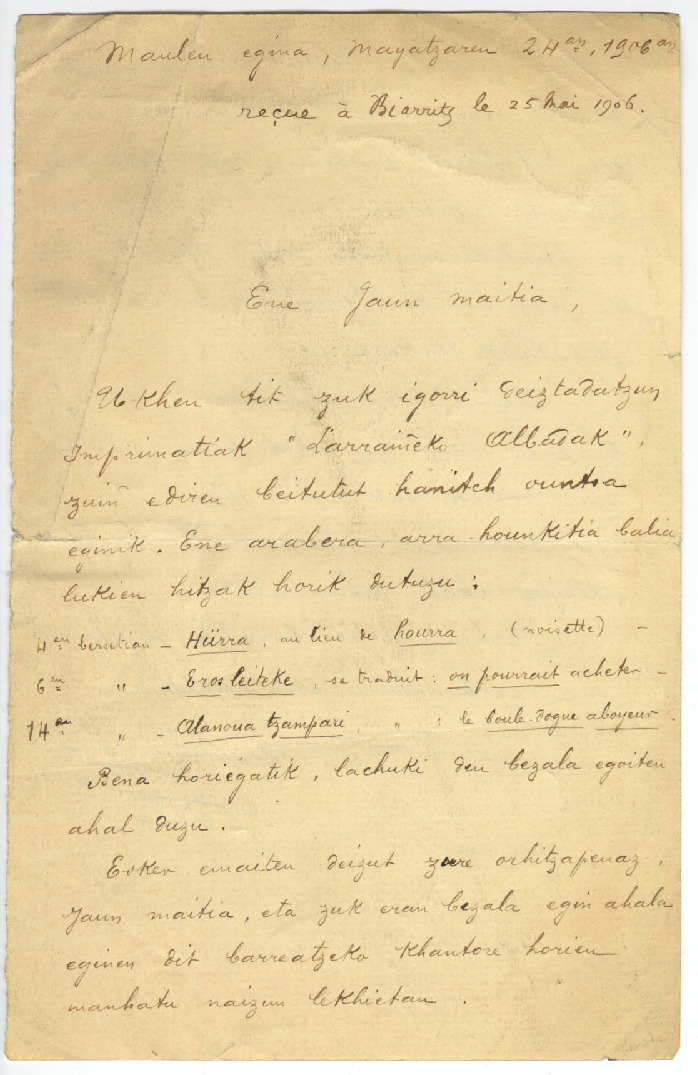 Maulen egina, Mayatzaren 24an, 1906an
reçue à Biarritz le 25 Mai 1906.
Ene Jaun maitia,
Ukhen tit zuk igorri deiztadatzun
Imprimatiak "Larraiñeko Albadak",
zuiñ ediren beitutut hanitch ountsa
eginik. Ene arabera, arra-hounkitia balia
lukien hitzak horik dutuzu :
4en bersetian - Hürra, au lieu de hourra, (noisette) -
6en " - Eros leiteke, se traduit : on pourrait acheter -
14en " - Alanoua tzampari, " : le boule-dogue aboyeur.
Bena horiegatik, lachuki den bezala egoiten
ahal duzu.
Esker emaiten deizut zure orhitzapenaz,
Jaun maitia, eta zuk eran bezala egin ahala
eginen dit barreatzeko khantore horien
manhatu naizun lekhietan.